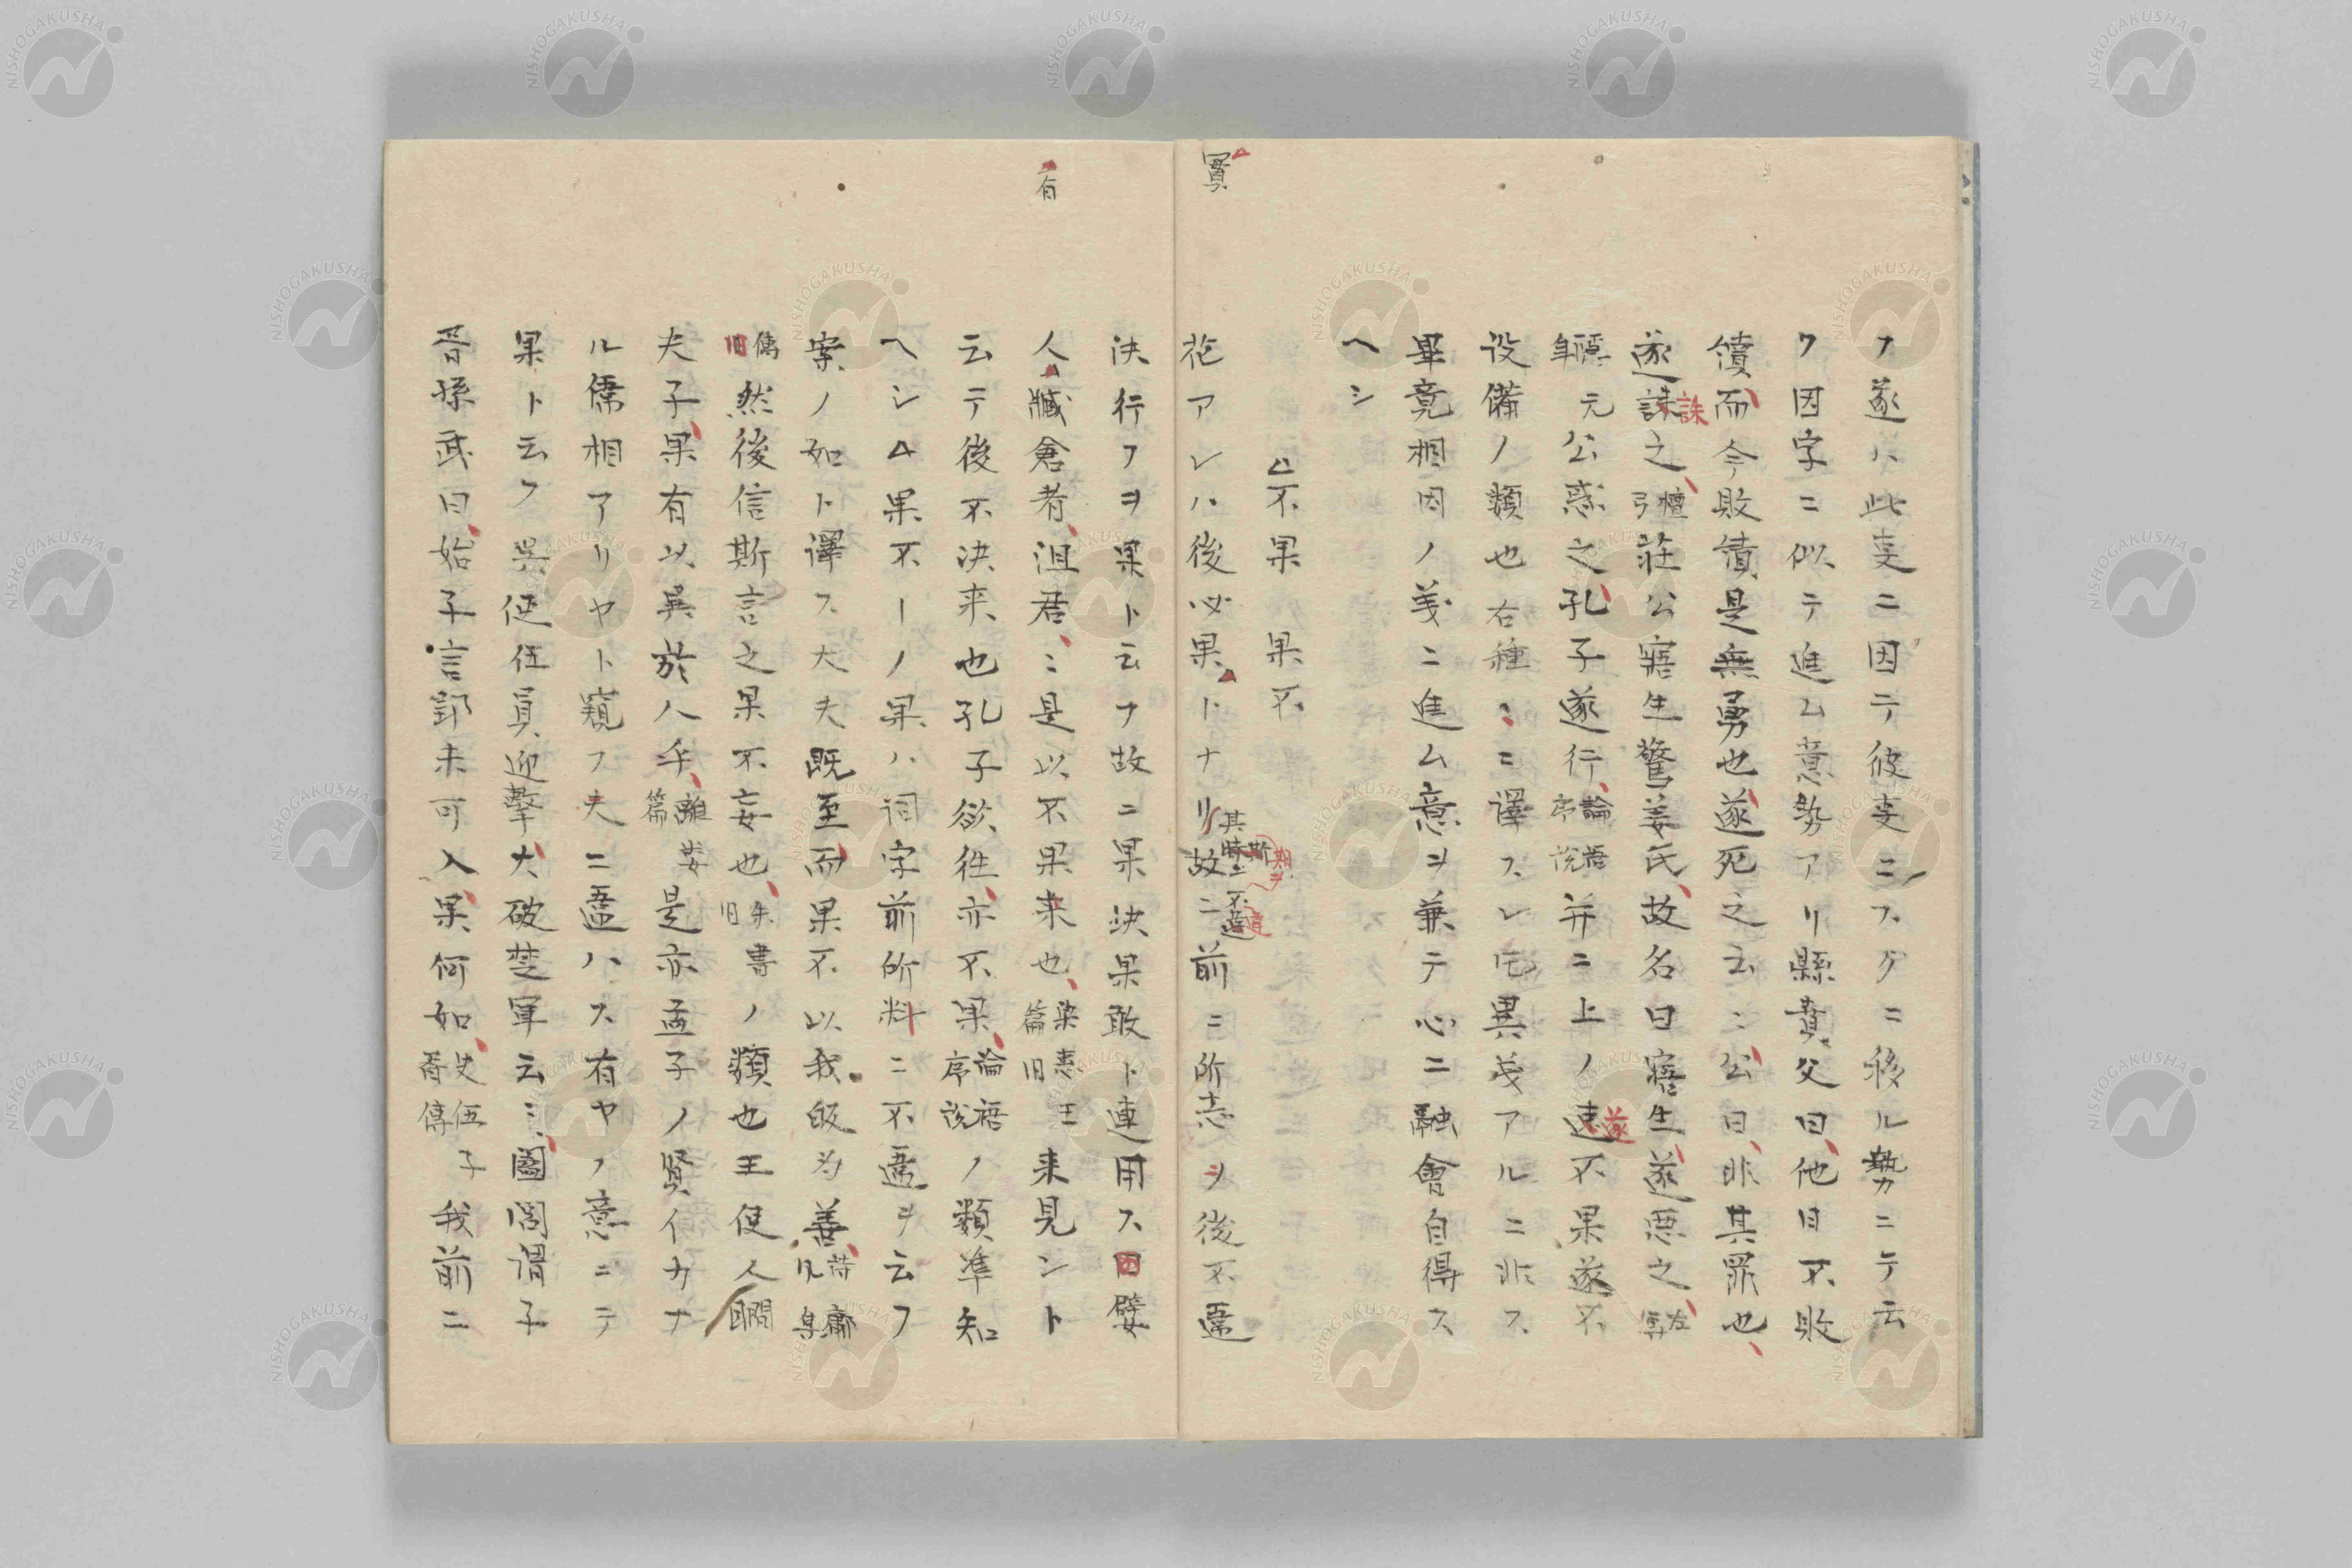 フ遂ハ此叓ニ因テ彼叓ニスクニ移ル勢ニテ云
ク因字ニ似テ進ム意勢アリ縣賁父曰他日不敗
績而今敗績是無勇也遂死之云〻公曰非其罪也
遂誅之檀弓荘公寤生驚姜氏故名曰寤生遂悪之左傳
誅
元公惑之孔子遂行論語序説并ニ上ノ速不果遂不
遂
設備ノ類也右種〻ニ譯スレ𪜈異義アルニ非ス
畢竟相因ノ義ニ進ム意ヲ兼テ心ニ融會自得ス
ヘシ
△不果 果不
實
花アレハ後必果トナリ故ニ前ニ所志ヲ後不違
其時ニ不違
決行フヲ果ト云フ故ニ果決果敢ト連用ス嬖
有
人臧倉者沮君〻是以不果来也梁惠王篇旧来見ント
云テ後不決来也孔子欲往亦不果論語序説ノ類準知
ヘシ△果不ーノ果ハ詞字前所料ニ不違ヲ云フ
案ノ如ト譯ス大夫既至而果不以我皈为善
然後信斯言之果不妄也朱書旧ノ類也王使人瞯
夫子果有以異於人乎離婁篇是亦孟子ノ賢イカナ
ル儒相アリヤト窺フ夫ニ違ハス有ヤノ意ニテ
果ト云フ呉使伍員迎撃大破楚軍云〻闔閭謂子
胥孫武曰始子言郢未可入果何如史伍子胥傳我前ニ